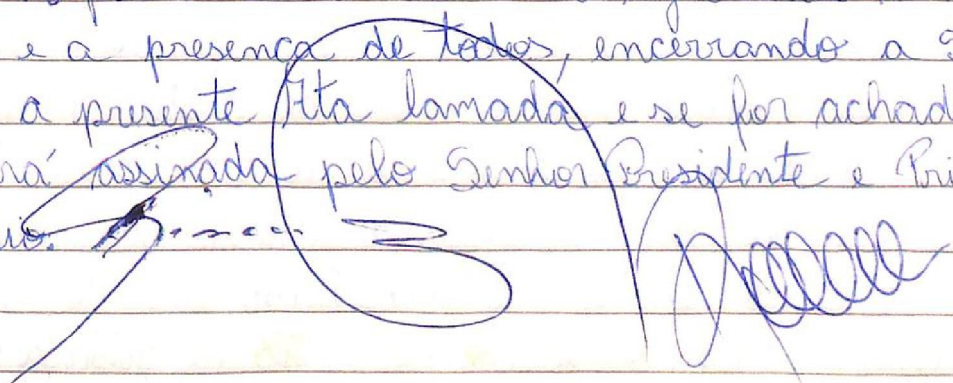 e a presença de todos, encerrando a S
a presente Ata lamada e se for achad
rá assinada pelo Senhor Presidente e Pri
io.